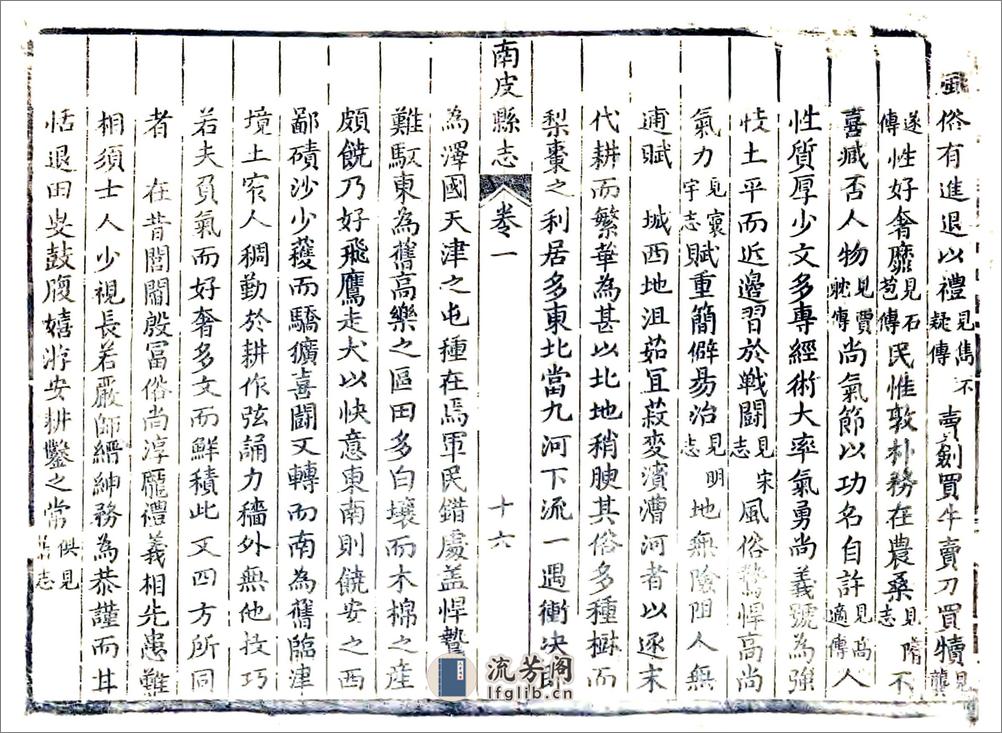 風俗有進退以禮見雋不疑傳 賣劍買牛賣刀買犢見龔
遂傳性好奢靡見石苞傳民惟敦朴務在農桑見隋志不
喜臧否人物見賈耽傳尚氣節以功名自許見高適傳人
性質厚少文多專經術大率氣勇尚義號為強
忮土平而近邊習於戰鬪見宋志風俗鷙悍高尚
氣力見寰宇志賦重簡僻易治見明志地無阻人無
逋賦 城西地沮茹宜菽麥濱漕河者以逐末
代耕而繁華為甚以北地稍腴其俗多種樹而
梨棗之利居多東北當九河下流一遇衝决
南皮縣志 卷一 十六
為澤國天津之屯種在焉軍民錯處盖悍鷙
難馭東為舊高樂之區田多白壤而木棉之産
頗饒乃好飛鷹走犬以快意東南則饒安之西
鄙磧沙少穫而驕獷喜鬪又轉而南為舊臨津
境土窄人稠勤於耕作弦誦力穡外無他技巧
若夫負氣而好奢多文而鮮積此又四方所同
者 在昔閭閻殷富俗尚淳龎禮義相先患難
相須士人少視長若嚴師縉紳務為恭謹而甘
恬退田叟鼓腹嬉游安耕鑿之常俱見志
流芳阁
lfglib.cn